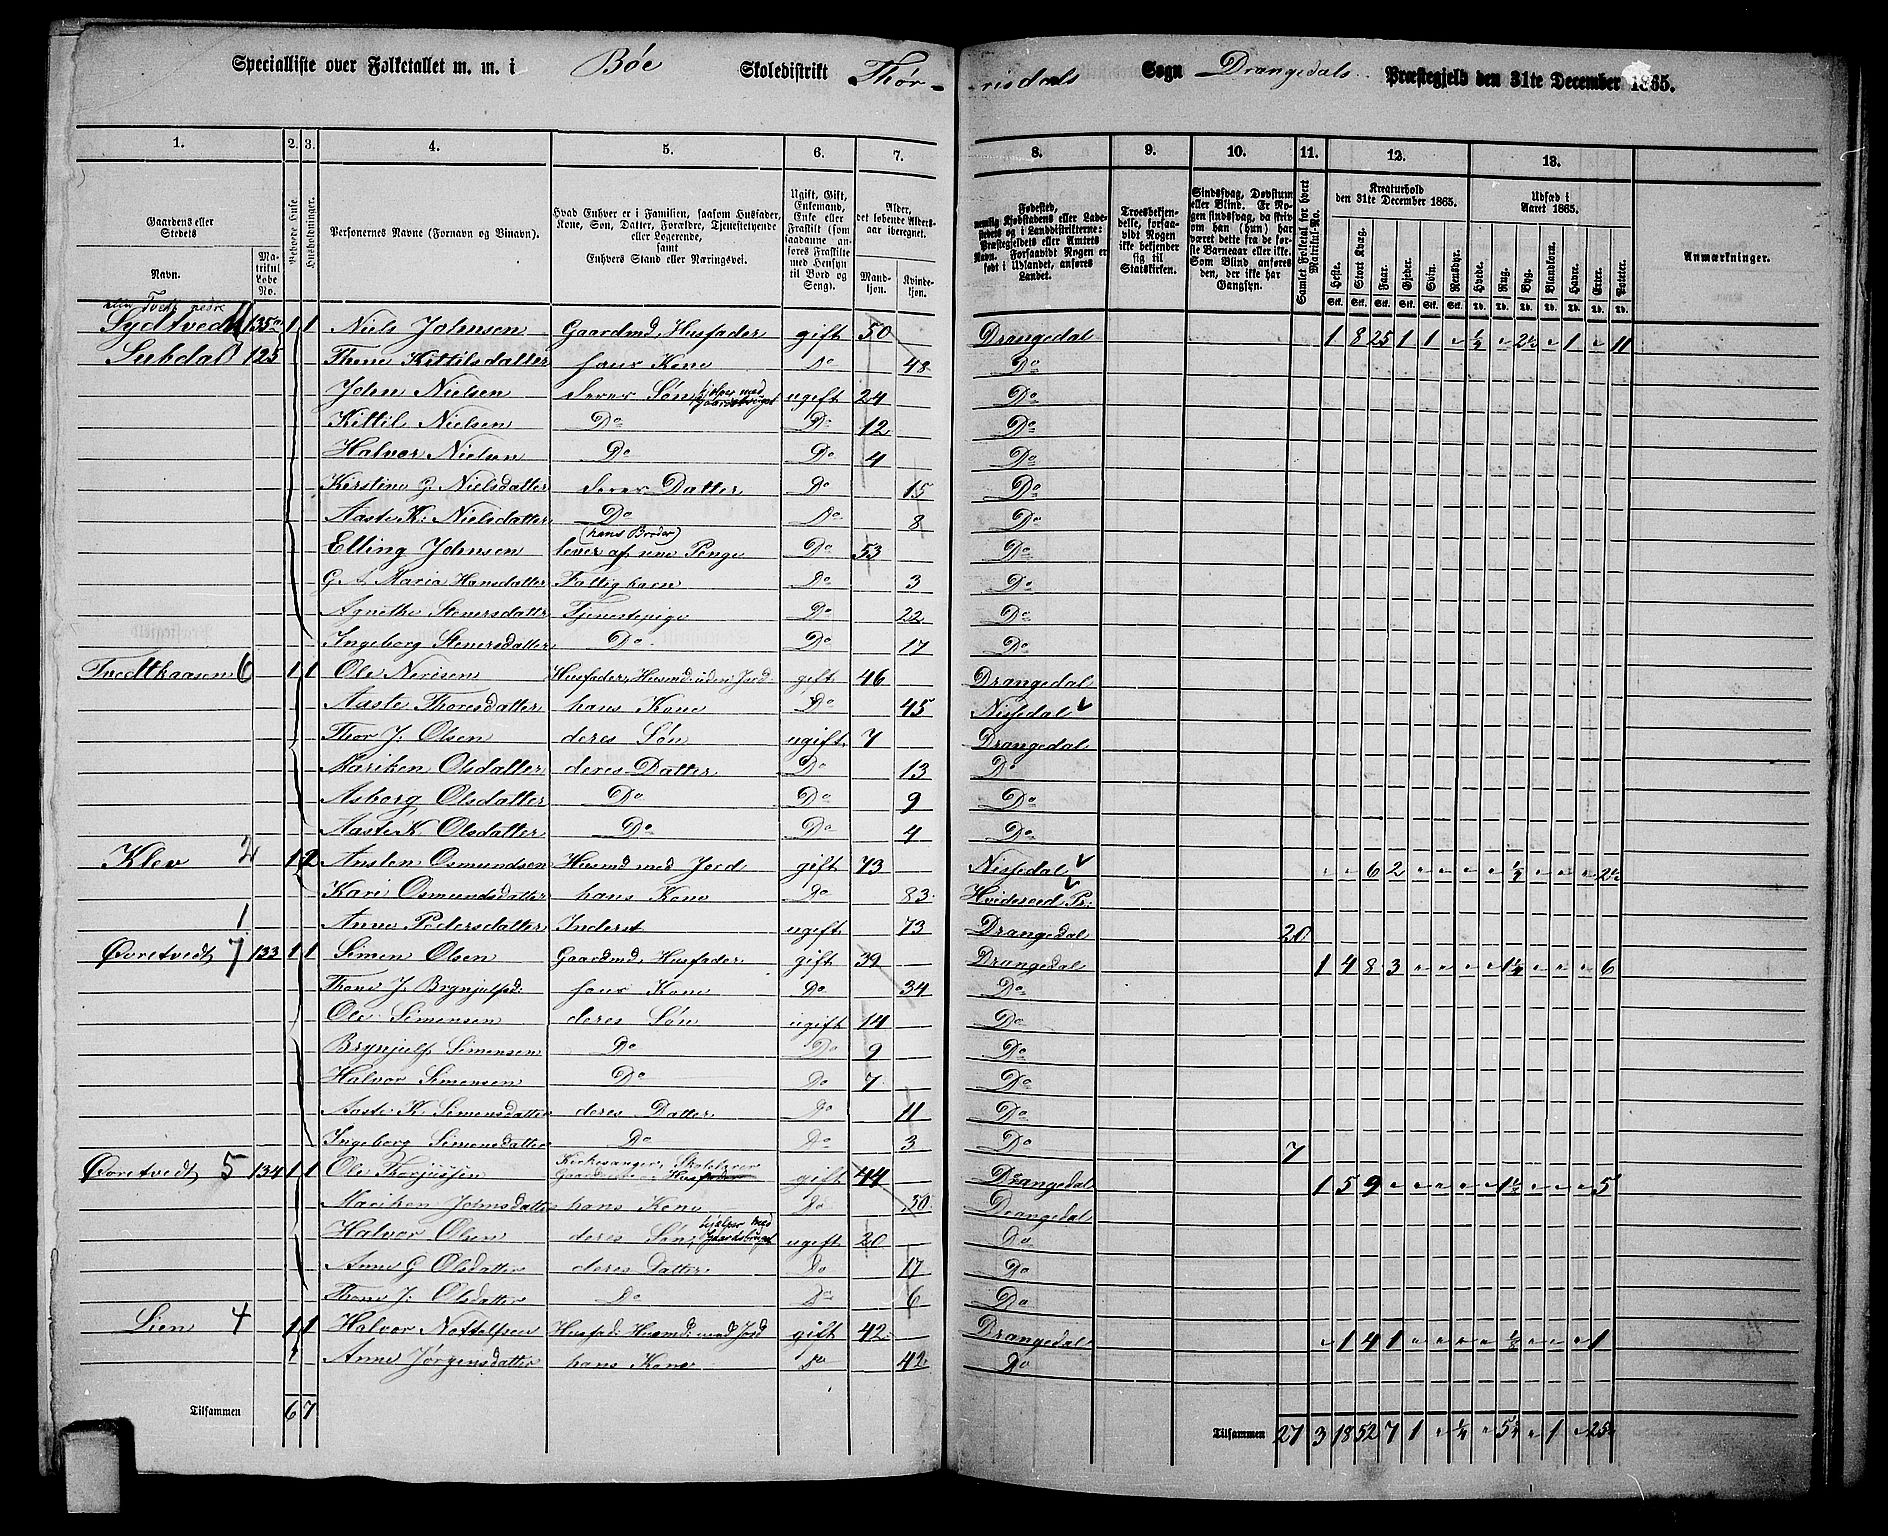 Specialliste over Folketallet m. m. i Bøe Skoledistrikt Thør- risdals Sogn Drangedals Præstegjeld den 31te December 1865.
1. 2. 3. 4. 5. 6. 7. 8. 9. 10. 11. 12. 13.
Gaardens eller Stedets
Navn. Matrikul Løbe No.
Beboede Huse.
Husholdninger.
Personernes Navne (Fornavn og Binavn).
Hvad Enhver er i Familien, saasom Husfader, Kone, Søn, Datter, Forældre, Tjenestetyende eller Logerende, samt Enhvers Stand eller Næringsvei.
Ugift, Gift, Enkemand, Enke eller Fraskilt (som saadanne anføres Fraskilte med Hensyn til Bord og Seng).
Alder, det løbende Alders- aar iberegnet.
Mand- kjøn. Kvinde- kjøn.
Fødested, nemlig Kjøbstadens eller Ladestedets og i Landdistrikterne: Præstegjeldets eller Amtets Navn. Forsaavidt Nogen er født i Udlandet, anføres Landet.
Troesbekjendelse, forsaavidt Nogen ikke bekjender sig til Statskirken.
Sindssvag, Døvstum eller Blind. Er Nogen sindssvag, da skrives om han (hun) har været dette fra de første Barneaar eller ikke. Som Blind anføres den, der ikke har Gangsyn.
Samlet Folketal for hvert Matrikul-No.
Kreaturhold den 31te December 1865.
Heste. Stort Kvæg. Faar. Gjeder. Svin. Rensdyr.
Udsæd i Aaret 1865.
Hvede. Rug. Byg. Blandkorn. Havre. Erter. Poteter.
Anmærkninger.
eller Tvedt nedre
Sydtvedt 11 135a 1 1 Niels Johnsen Gaardmd, Husfader gift 50 Drangedal 1 8 25 1 1 " 1/4 " 2 1/2 " 1 " 11
Subdal 125 Thone Kittilsdatter hans Kone Do 48 Do
John Nielsen deres Søn, hjelper med Gaardsbruget ugift 24 Do
Kittil Nielsen Do Do 12 Do
Halvor Nielsen Do Do 4 Do
Kirstine G. Nielsdatter deres Datter Do 15 Do
Aaste K: Nielsdatter Do Do 8 Do
Elling Johnsen (hans Broder) lever af sine Penge Do 53 Do
G. A. Maria Hansdatter Fattigbarn Do 3 Do
Agnethe Stenersdatter Tjenestepige Do 22 Do
Ingeborg Stenersdatter Do Do 17 Do
Tvedtkaasen 6 1 1 Ole Nerisen Husfader, Husmd uden Jord gift 46 Drangedal
Aaste Thoresdatter hans Kone Do 45 Nissedal
Thor J. Olsen deres Søn ugift 7 Drangedal
Mariken Olsdatter deres Datter Do 13 Do
Asborg Olsdatter Do Do 9 Do
Aaste K. Olsdatter Do Do 4 Do
Klev 2 1 2 Ansten Osmundsen Husmd med Jord gift 73 Nissedal " " 6 2 " " " " 1/4 " " " 2 1/2
Kari Osmundsdatter hans Kone Do 83 Hvideseid Pr:
1 Anne Pedersdatter Inderst ugift 73 Drangedal 20
Øvretvedt 7 133 1 1 Simen Olsen Gaardmd, Husfader gift 39 Drangedal 1 4 8 3 " " " " 1 1/4 " " " 6
Thone J. Brynjulfsd: hans Kone Do 34 Do
Ole Simensen deres Søn ugift 14 Do
Brynjulf Simensen Do Do 9 Do
Halvor Simensen Do Do 7 Do
Aaste K Simensdatter deres Datter Do 11 Do
Ingeborg Simensdatter Do Do 3 Do 7
Øvretvedt 5 134 1 1 Ole Thorjussen Kirkesanger, Skolelærer Gaardmd Husfader gift 44 Drangedal 1 5 9 " " " " " 1 1/2 " " " 5
Mariken Johnsdatter hans Kone Do 50 Drangedal
Halvor Olsen deres Søn, hjelper med Gaardsbruget ugift 20 Do
Anne G Olsdatter deres Datter Do 17 Do
Thone J: Olsdatter Do Do 6 Do
Lien 4 1 1 Halvor Nottolfsen Husfad: Husmd: med Jord gift 42 Drangedal " 1 4 1 " " " " 1/8 " " " 1
Anne Jørgensdatter hans Kone Do 42 Do
Tilsammen 6 7 Tilsammen 27 3 18 52 7 1 " 1/4 " 5 3/4 " 1 " 25 1/2